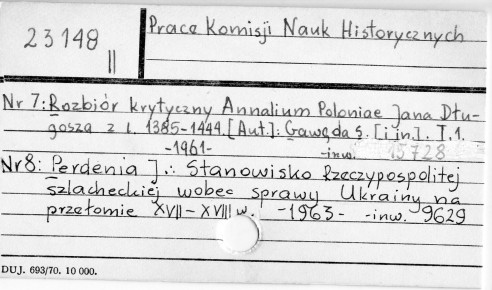 23148
II
Prace Komisji Nauk Historycznych
Nr 7: Rozbiór krytyczny Annalium Poloniae Jana Dłu-
gosza z l. 1385-1444. [Aut.]: Gawęda S. [i in]. T. 1.
-1961- -inw. 15728
Nr 8: Perdenia J.: Stanowisko Rzeczypospolitej
szlacheckiej wobec sprawy Ukrainy na
przełomie XVII-XVIII w. -1963- -inw. 9629
DUJ. 693/70. 10 000.